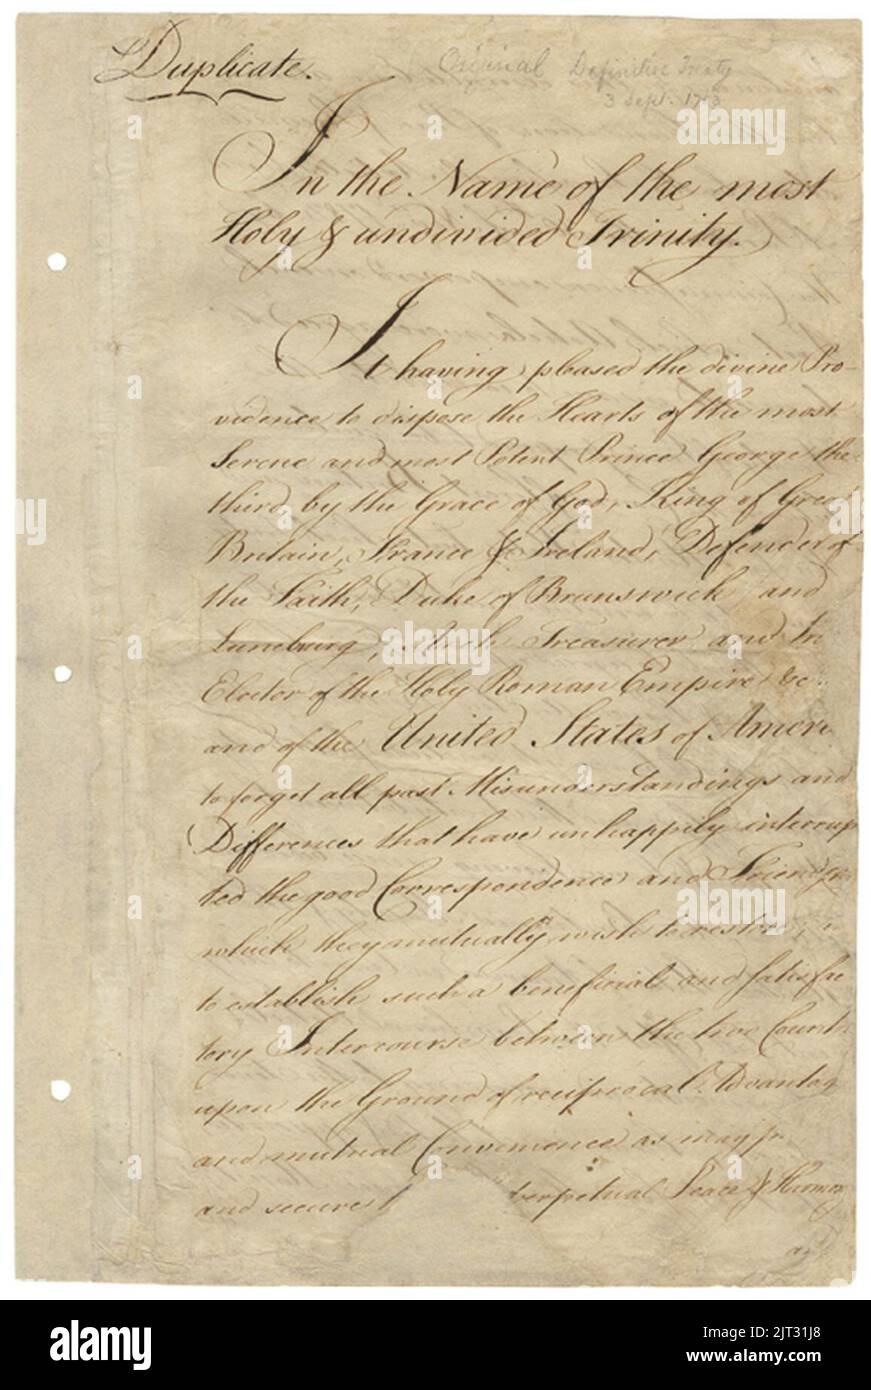 Duplicate.
Original Definitive Treaty
3 Sept. 1783
In the Name of the most
Holy & undivided Trinity.
It having pleased the divine Pro-
vidence to dispose the Hearts of the most
Serene and most Potent Prince George the
third, by the Grace of God, King of Great
Britain, France & Ireland, Defender of
the Faith, Duke of Brunswick and
Luneburg, Arch Treasurer and
Elector of the Holy Roman Empire &c.
and of the United States of Ameri
to forget all past Misunderstandings and
Differences that have unhappily interrup
ted the good Correspondence and Friends
which they mutually wish to restore;
to establish such a beneficial and satisfac
tory Intercourse between the two Countr
upon the Ground of reciprocal Advantag
and mutual Convenience as may
and secure perpetual Peace & Harmony
alamy
Image ID: 2JT31J8
www.alamy.com